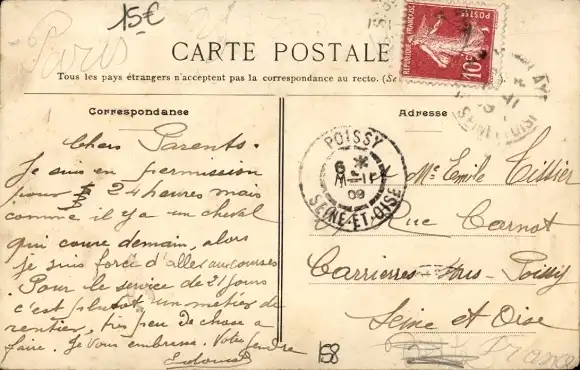 15€
Paris
CARTE POSTALE
Tous les pays étrangers n'acceptent pas la correspondance au recto. (Se
REPUBLIQUE FRANÇAISE
10
POSTES
Correspondance
1
Chers Parents.
Je suis en permission
pour 24 heures mais
comme il y a un cheval
qui coure demain, alors
je suis forcé d'aller aux courses
Pour le service de 21 jours
c'est plutot un metier de
rentier, très peu de chose a
faire. Je vous embrasse. Votre
Edouard
Adresse
POISSY
6 *
09
SEINE-ET-OISE
Mr Emile Tillier
Rue Carnot
Carrierres-sous-Poissy
Seine et Oise
France
E8